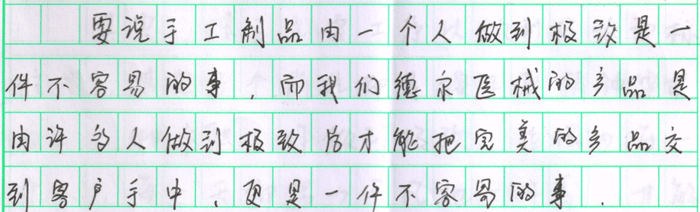 要说手工制品由一个人做到极致是一
件不容易的事，而我们德永医械的产品是
由许多人做到极致后才能把完美的产品交
到客户手中，更是一件不容易的事．